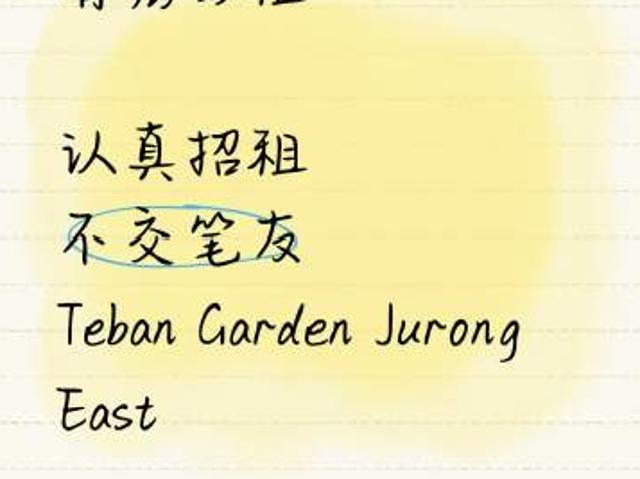 认真招租
不交笔友
Teban Garden Jurong
East